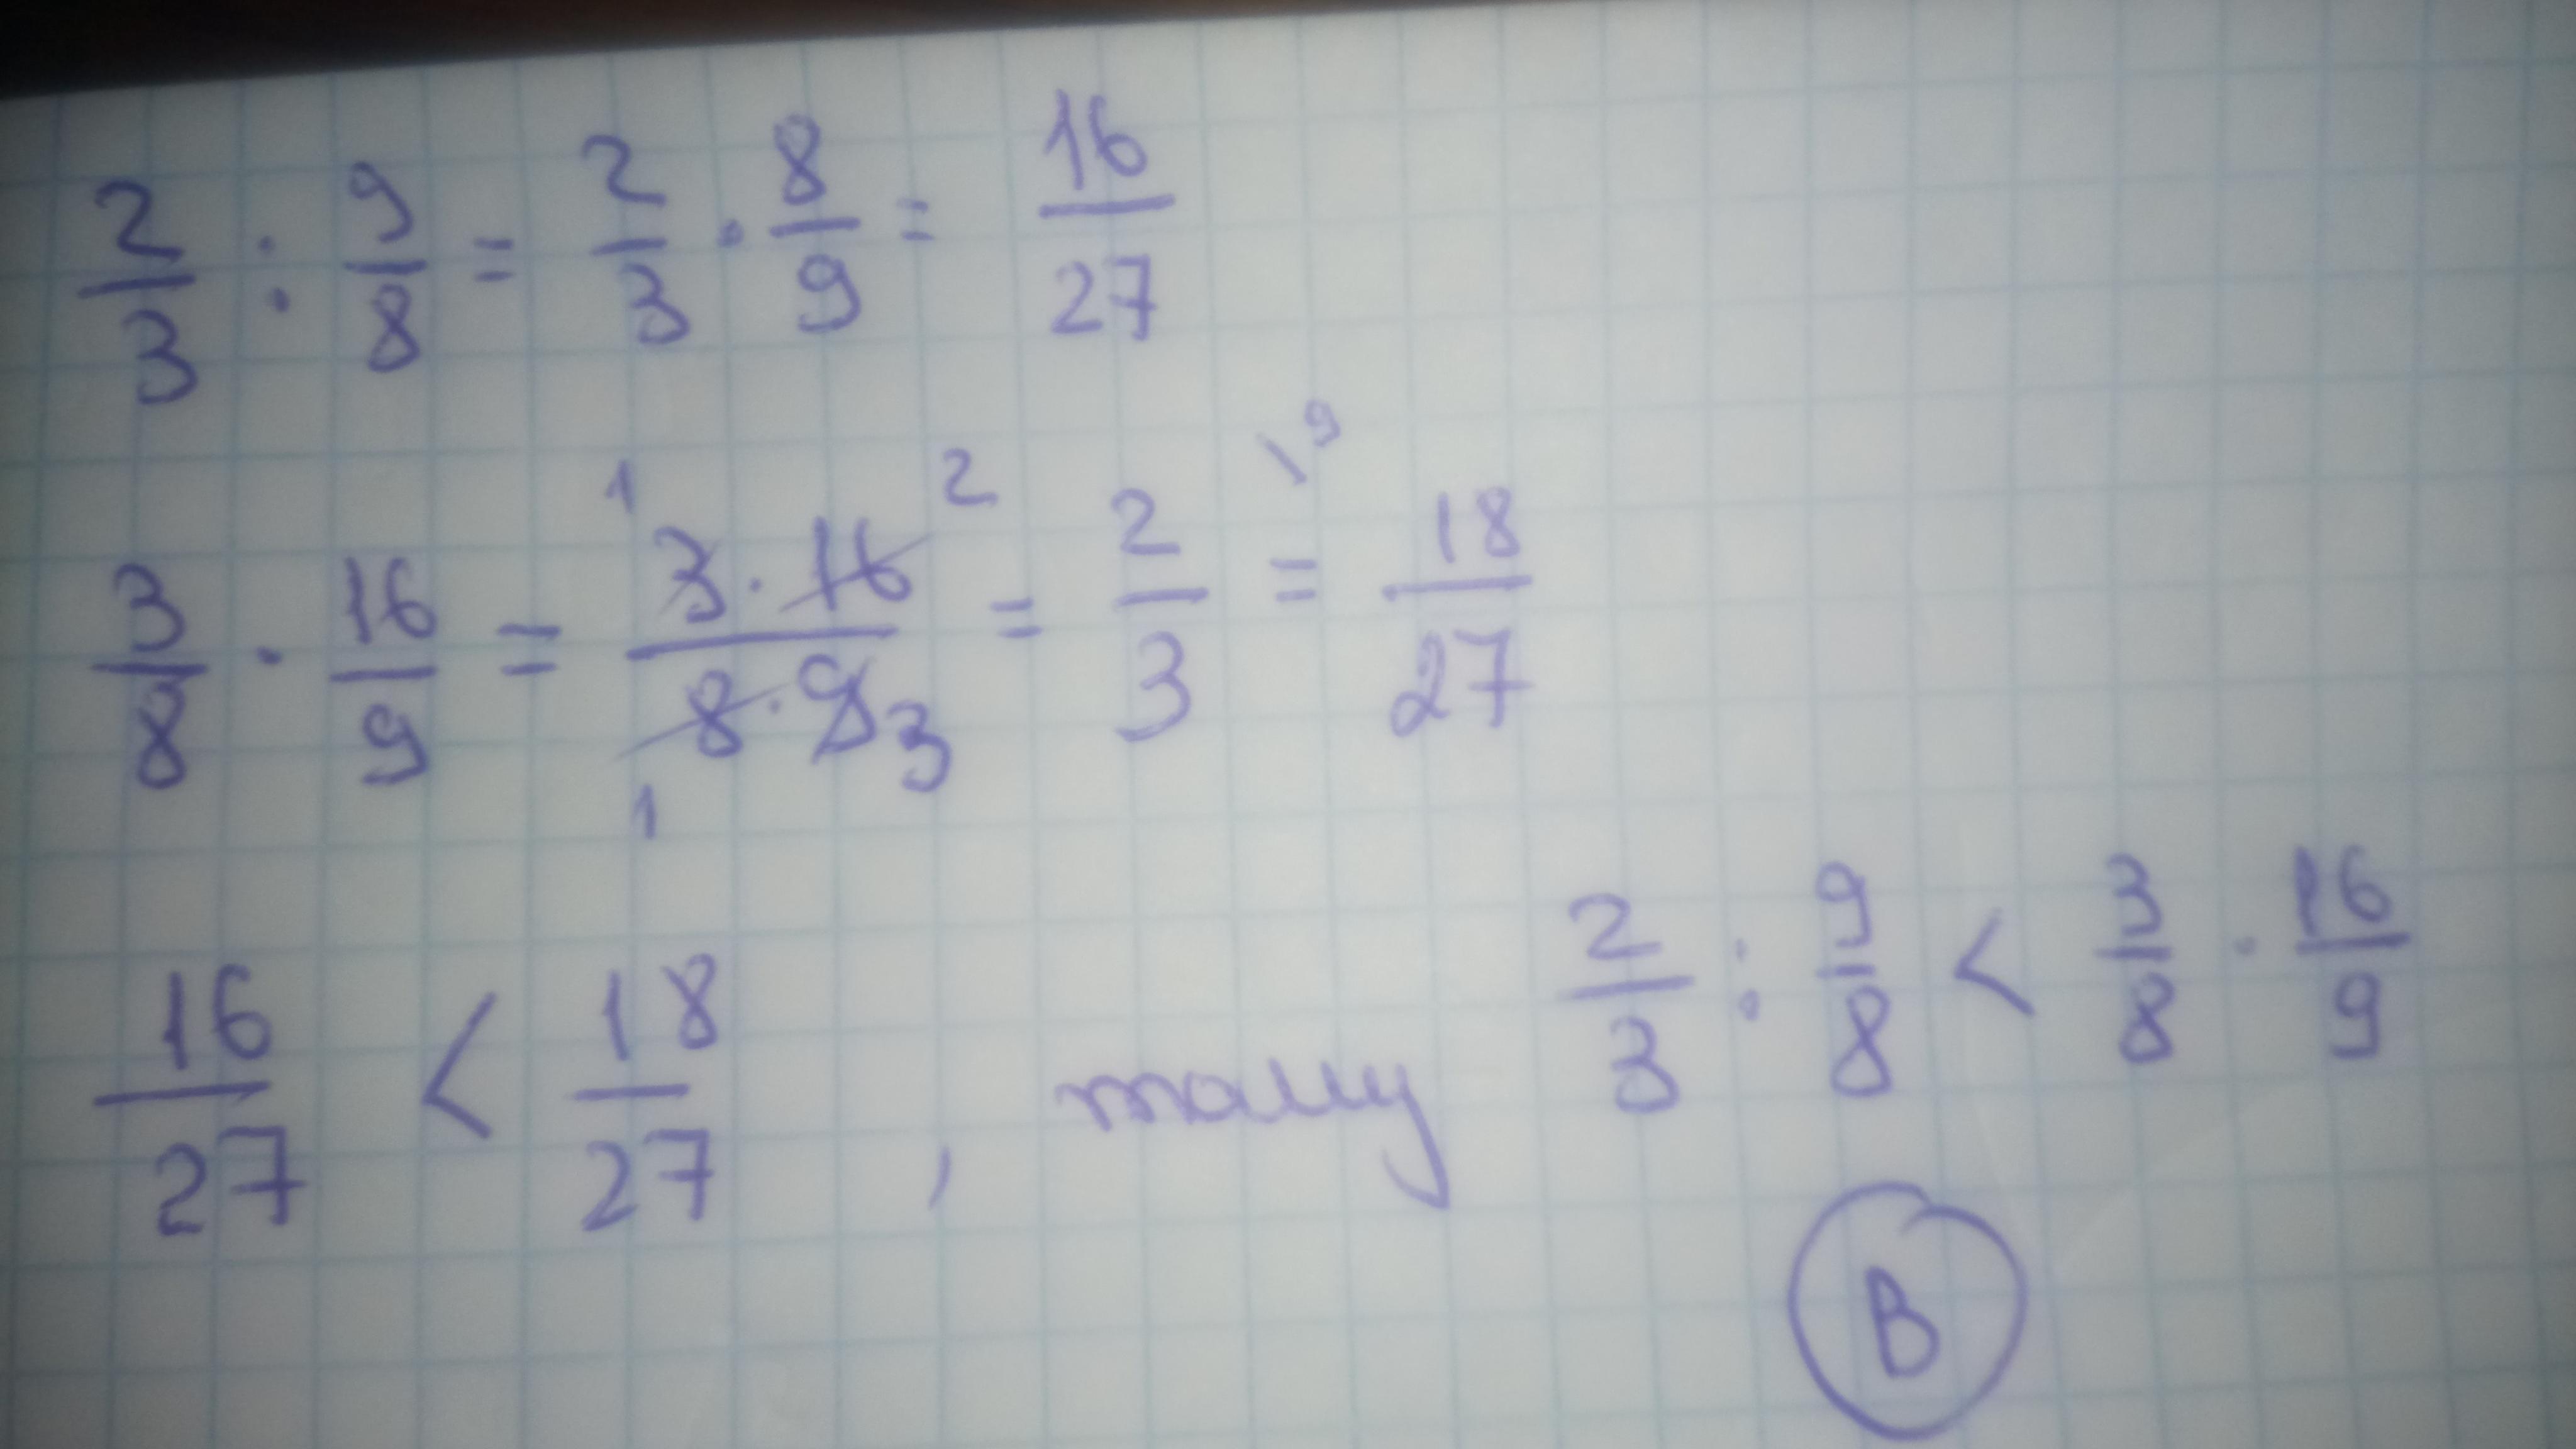 2/3 : 9/8 = 2/3 · 8/9 = 16/27
3/8 · 16/9 = 3·16/8·9 = 2/3 = 18/27
1 2 1 3 \9
16/27 < 18/27 , тому 2/3 : 9/8 < 3/8 · 16/9
В